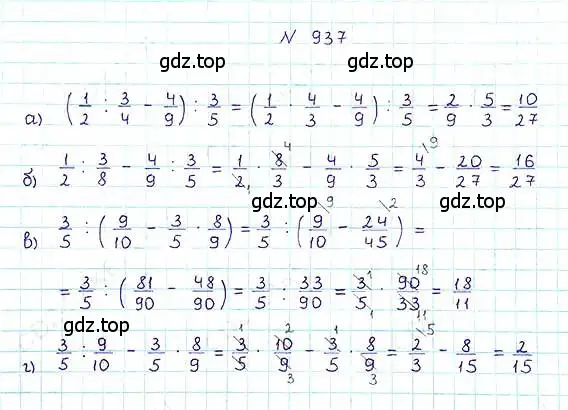 N 937
gdz.top gdz.top
а) (1/2 : 3/4 - 4/9) : 3/5 = (1/2 · 4/3 - 4/9) : 3/5 = 2/9 · 5/3 = 10/27
б) 1/2 : 3/8 - 4/9 : 3/5 = 1/2 1 · 8/3 4 - 4/9 · 5/3 = 4/3 \9 - 20/27 = 16/27
gdz.top gdz.top
в) 3/5 : (9/10 - 3/5 · 8/9) = 3/5 : (9/10 \9 - 24/45 \2) =
= 3/5 : (81/90 - 48/90) = 3/5 : 33/90 = 3/5 1 1 · 90/33 18 11 = 18/11
gdz.top gdz.top
г) 3/5 : 9/10 - 3/5 · 8/9 = 3/5 1 1 · 10/9 2 3 - 3/5 1 · 8/9 3 = 2/3 \5 - 8/15 = 2/15